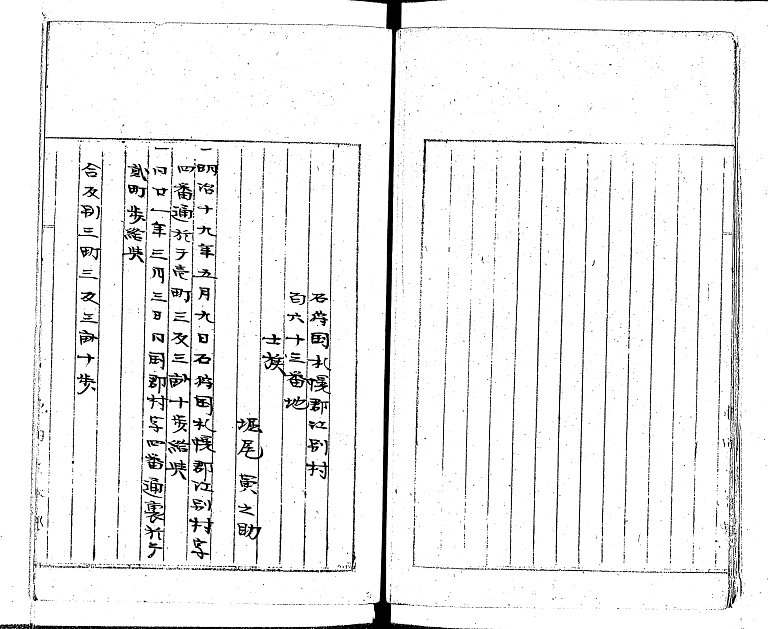 石狩国札幌郡江別村
百六十三番地
士族
堀尾寅之助
一明治十九年五月九日石狩国札幌郡江別村字
四番通於テ壱町三反三畝十歩給与
一同廿一年三月三日同国郡村字四番通裏於テ
貳町歩給与
合反別三町三反三畝十歩